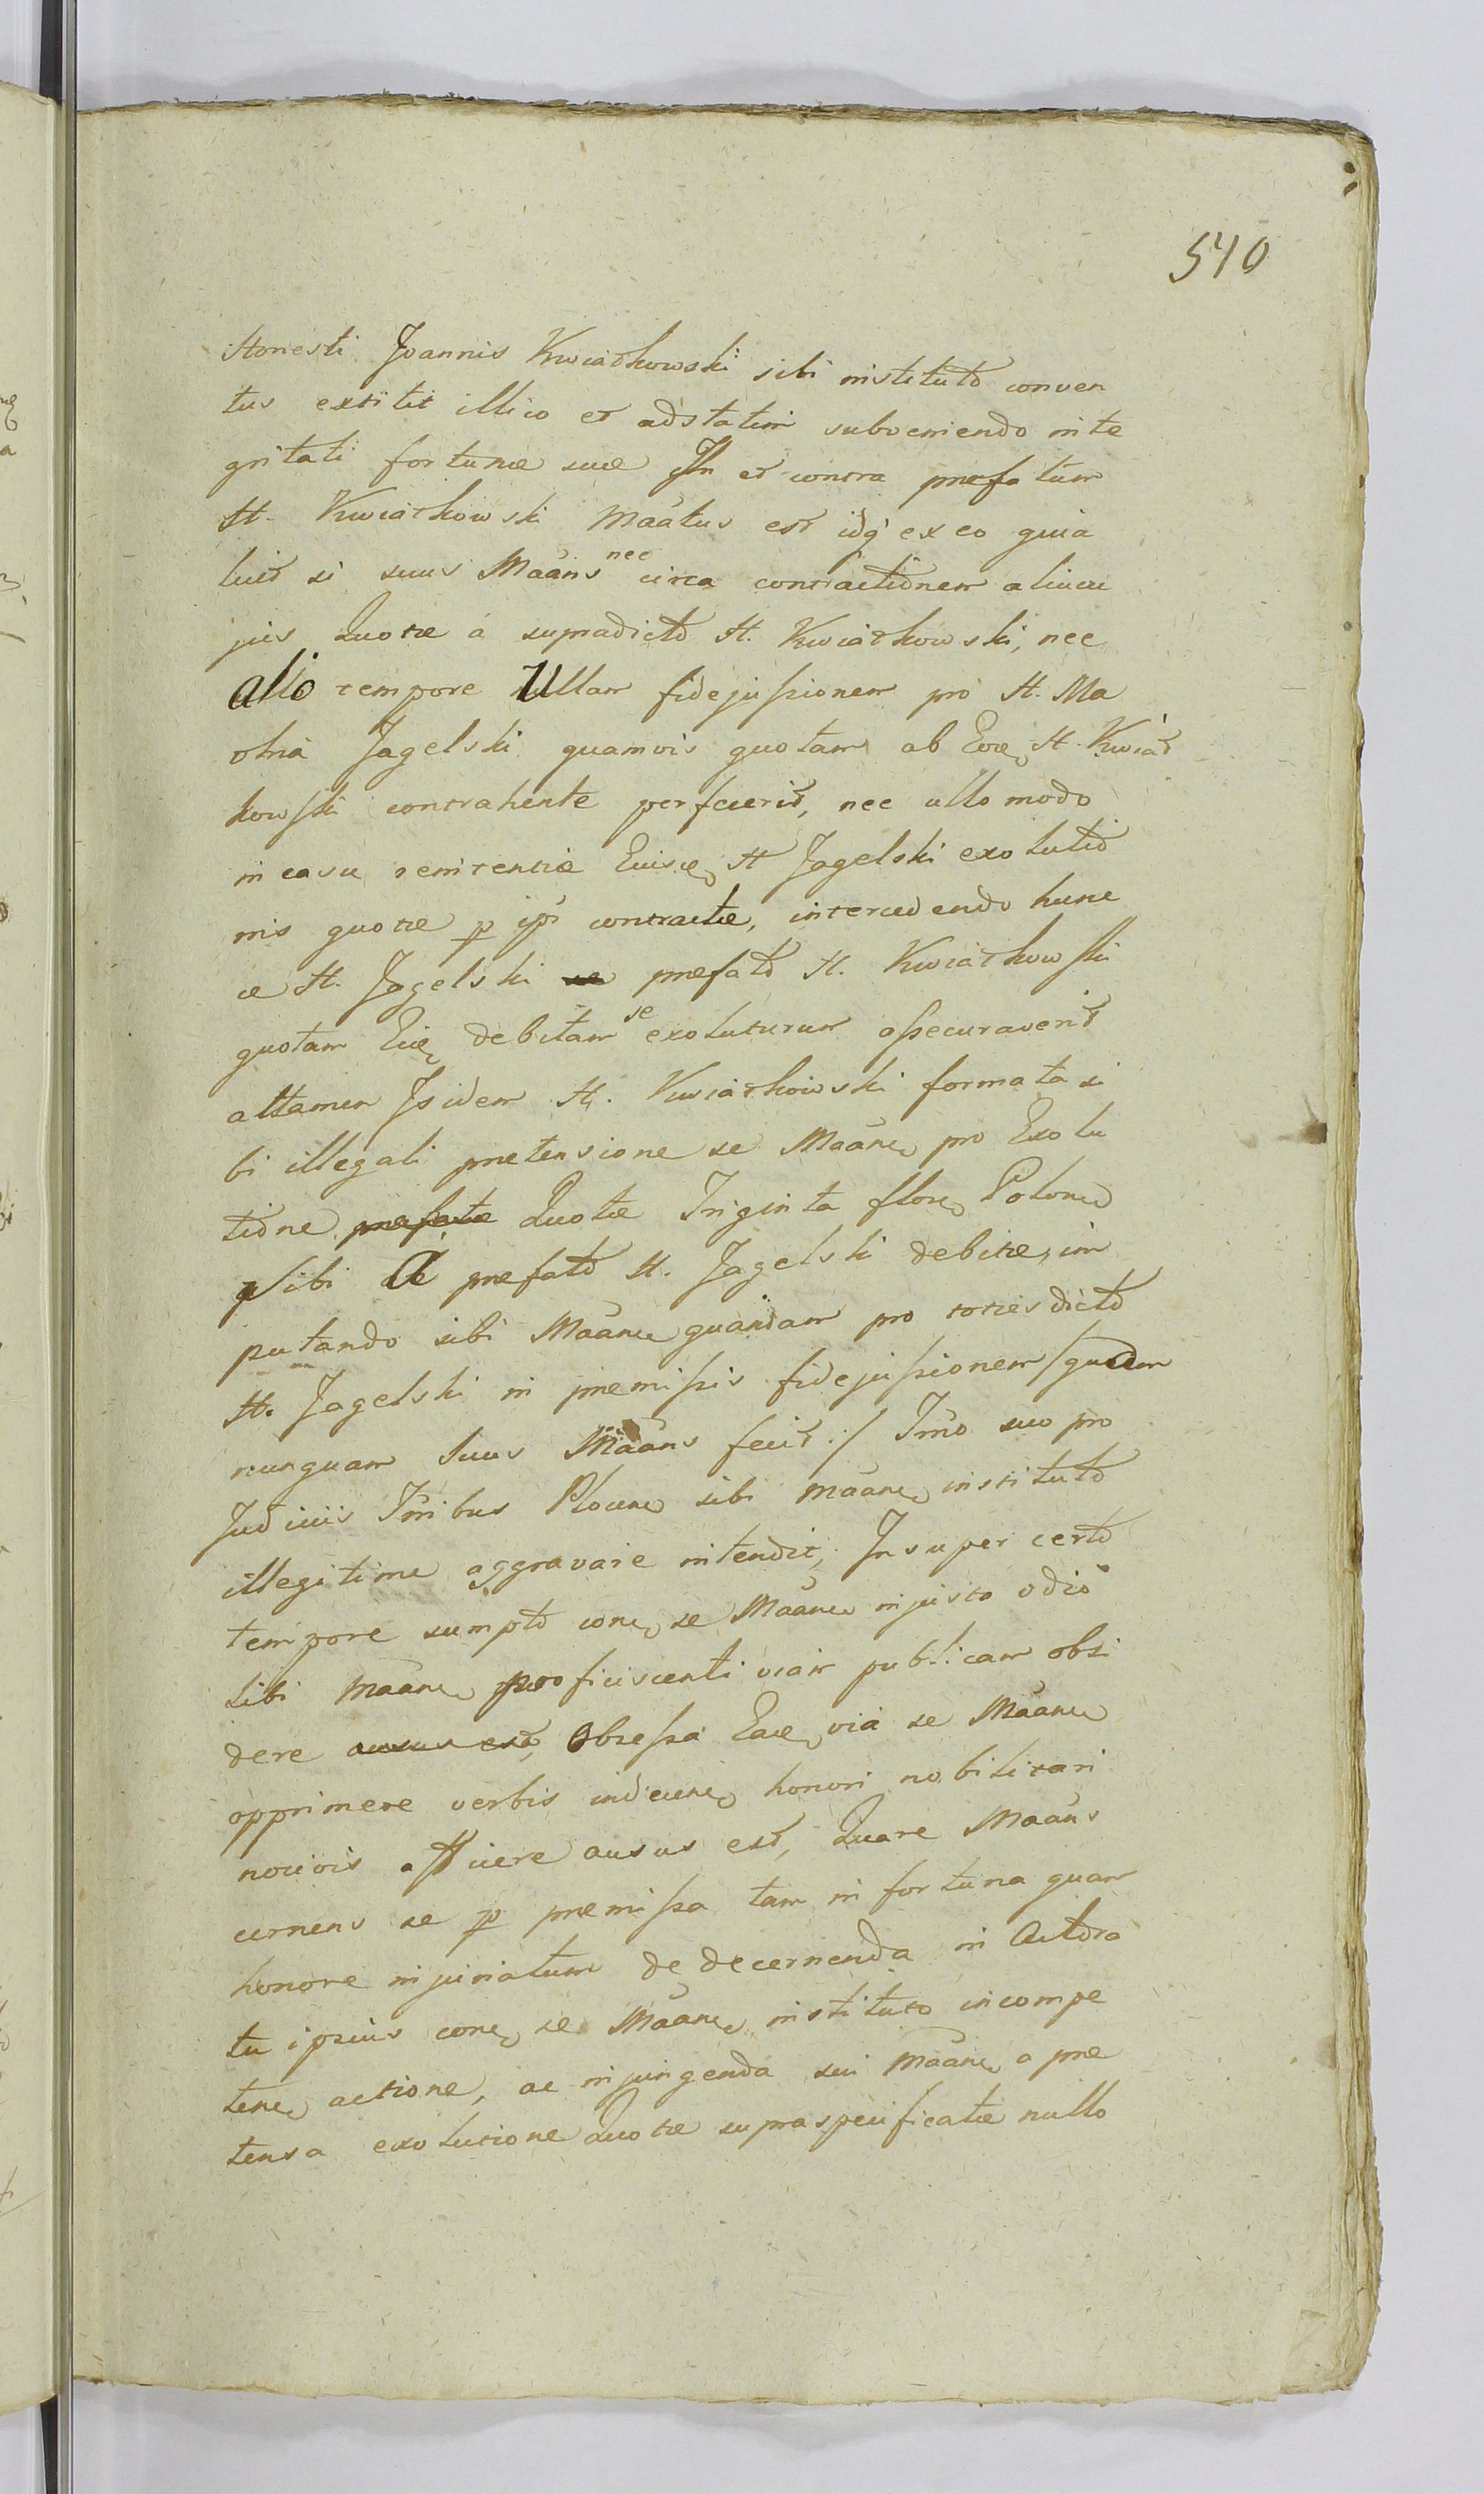 540
Honesti Joannis Kwiatkowski sibi institutõ conven
tus extitit illico et adstatim subveniendo inte
gritati fortunæ suæ In et contra præfatum
H. Kwiatkowski Maãtus est idq̃ ex eo quia
licet si suus Maãns nec circa contractionem alicu
jus Quotæ á supradictõ H. Kwiatkowski, nec
allo tempore Ullam fidejussionem pro H. Ma
thia Jagelski quamvis quotam ab Eoe H. Kwiat
kowski contrahente perfecerit, nec ullo modo
in casu renitentiæ Eiusd H Jagelski exolutio
nis quotæ p ip̃i contractæ, intercedendo hunc
ce H. Jagelski præfatõ H. Kwiatkowski
quotam Eie debitam se exoluturum assecuraverit
attamen Isidem H. Kwiatkowski formata si
bi illegali prætensione se Maãne pro Exolu
tiõne præfatæ Quotæ Triginta flore Polone
sibi A præfatõ H. Jagelski debitæ, im
putando sibi Maãne quandam pro toties dictõ
H. Jagelski in præmissis fidejussionem /quam
nunquam Suus Maãns fecit:/ Im̃o suo pro
Judiciis Im̃ibus Plocene sibi maãne institutõ
illegitime aggravare intendit, Insuper certõ
tempore sumptõ cone se Maãne injusto odio
sibi Maãne proficiscenti viam publicam obsi
dere ausus est, Obsessa Eae via se Maãne
opprimere verbis indecene honori nobilitari
nocivis afficere ausus est, Quare Maãns
cernens se p præmissa tam in fortuna quam
honore injuriatum de decernenda in Actõra
tu ipsius cone se Maãne instituto incompe
tene actione, ac injungenda sui Maãne a præ
tensa exolutione Quotæ supraspecificatæ nullo